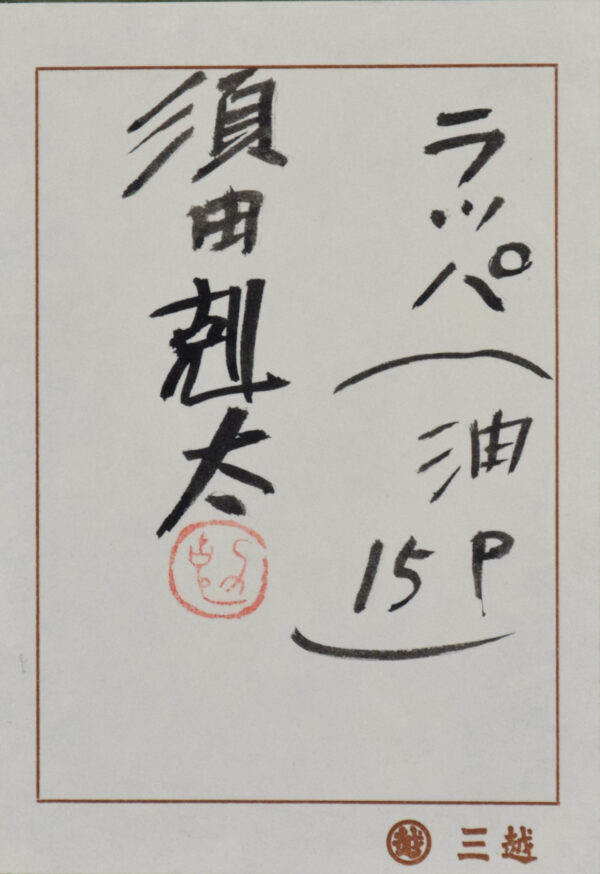 ラッパ
（油
15P）
須田剋太
越 三越